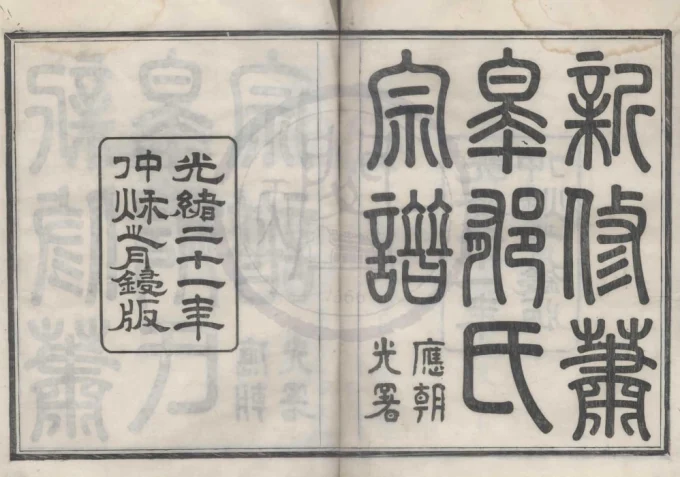 新修蕭
皋郁氏
宗譜
應朝
光署
光緒二十一年
仲秌之月鋟版